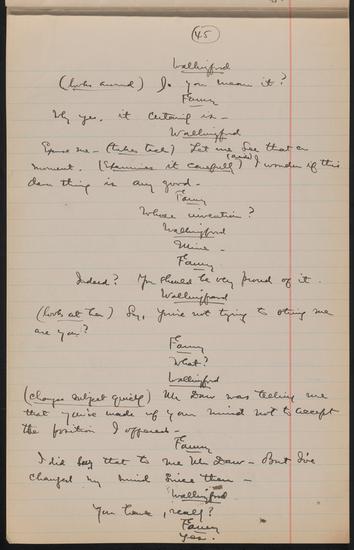 45
Wallingford
(looks around) Do you mean it?
Fanny
Why yes, it certainly is -
Wallingford
Excuse me - (takes tack) Let me see that a
moment. (Examines it carefully) (aside) I wonder if this
darn thing is any good -
Fanny
Whose invention?
Wallingford
Mine -
Fanny
Indeed? You should be very proud of it.
Wallingford
(looks at her) Say, you're not trying to string me
are you?
Fanny
What?
Wallingford
(changes subject quickly) Mr Daw was telling me
that you've made up your mind not to accept
the position I offered -
Fanny
I did say that to me Mr Daw - But I've
changed my mind since then -
Wallingford
You have, really?
Fanny
Yes.